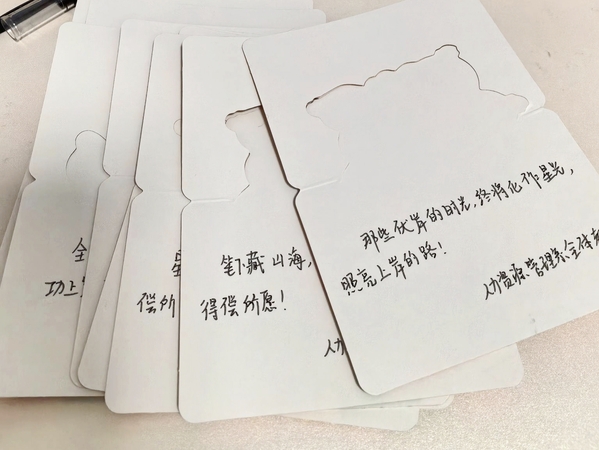 全
功上
偿所
笔藏山海,
得偿所愿!
人力
那些伏岸的时光,终将化作星光,
照亮上岸的路!
人力资源管理系全体